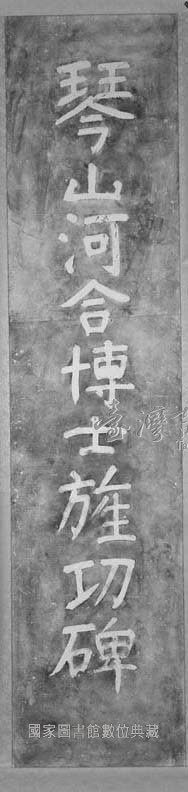 琴山河合博士旌功碑
臺灣
國家圖書館數位典藏